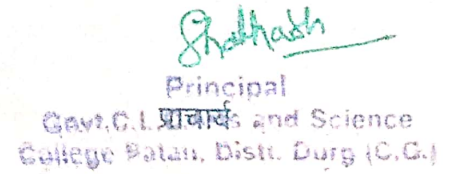 Principal
Govt.C.L. प्राचार्य and Science
College Patan, Distt. Durg (C.G.)